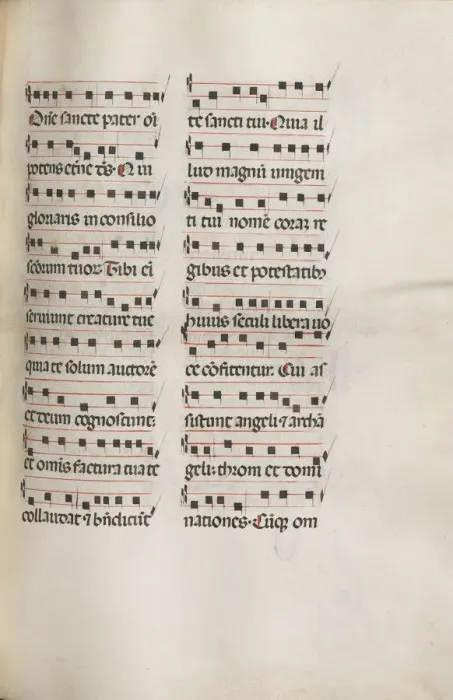 Dñe sancte pater oĩ
potens etñe ds. Qui
gloriaris in consilio
scõrum tuor. Tibi ei
seruiunt creature tue
quia te solum auctorẽ
et deum cognoscunt:
et omis factura tua te
collaudat ⁊ bñdicunt
te sancti tui. Quia il
lud magnũ unigeni
ti tui nomẽ coraꝫ re
gibus et potestatibꝫ
huius seculi libera uo
ce cõfitentur. Cui as
sistunt angeli ⁊ archã
geli: throni et domi
nationes. Cũqꝫ om